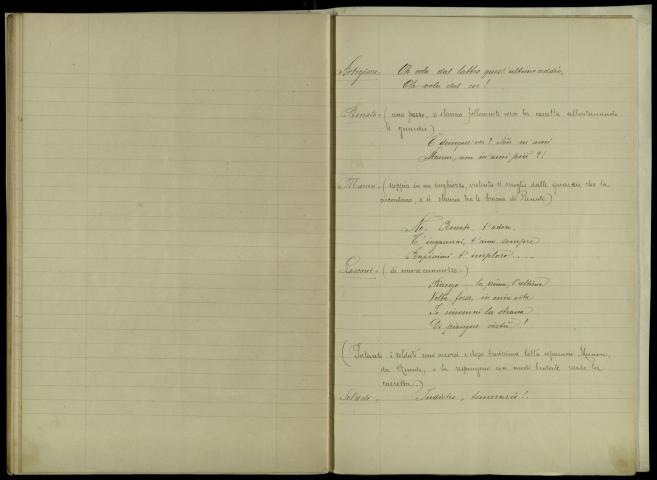 Artigiane. Oh vola dal labbro quest'ultimo addio,
Oh vola dal cor!
Renato - (con passo, si slancia follemente verso la carretta allontanando
le guardie)
E dunque ver? Non m'ami
Manon, non m'ami più?!
Manon - (scoppia in un singhiozzo, violenta si scioglie dalle guardie che la
circondano, e si slancia tra le braccia di Renato)
No, Renato, t'adoro,
T'inganni, t'amo sempre
Rapiscimi t'imploro....
Lescaut - (di nuovo commosso)
Piango.... la prima, l'ultima
Volta forse in mia vita
Io rinvenni la strana
Di piangere virtù!
(Intanto i soldati sono accorsi e dopo brevissima lotta separano Manon
da Renato, e la respingono con modi brutali verso la
carretta.)
Soldati - Indietro, temerario!.